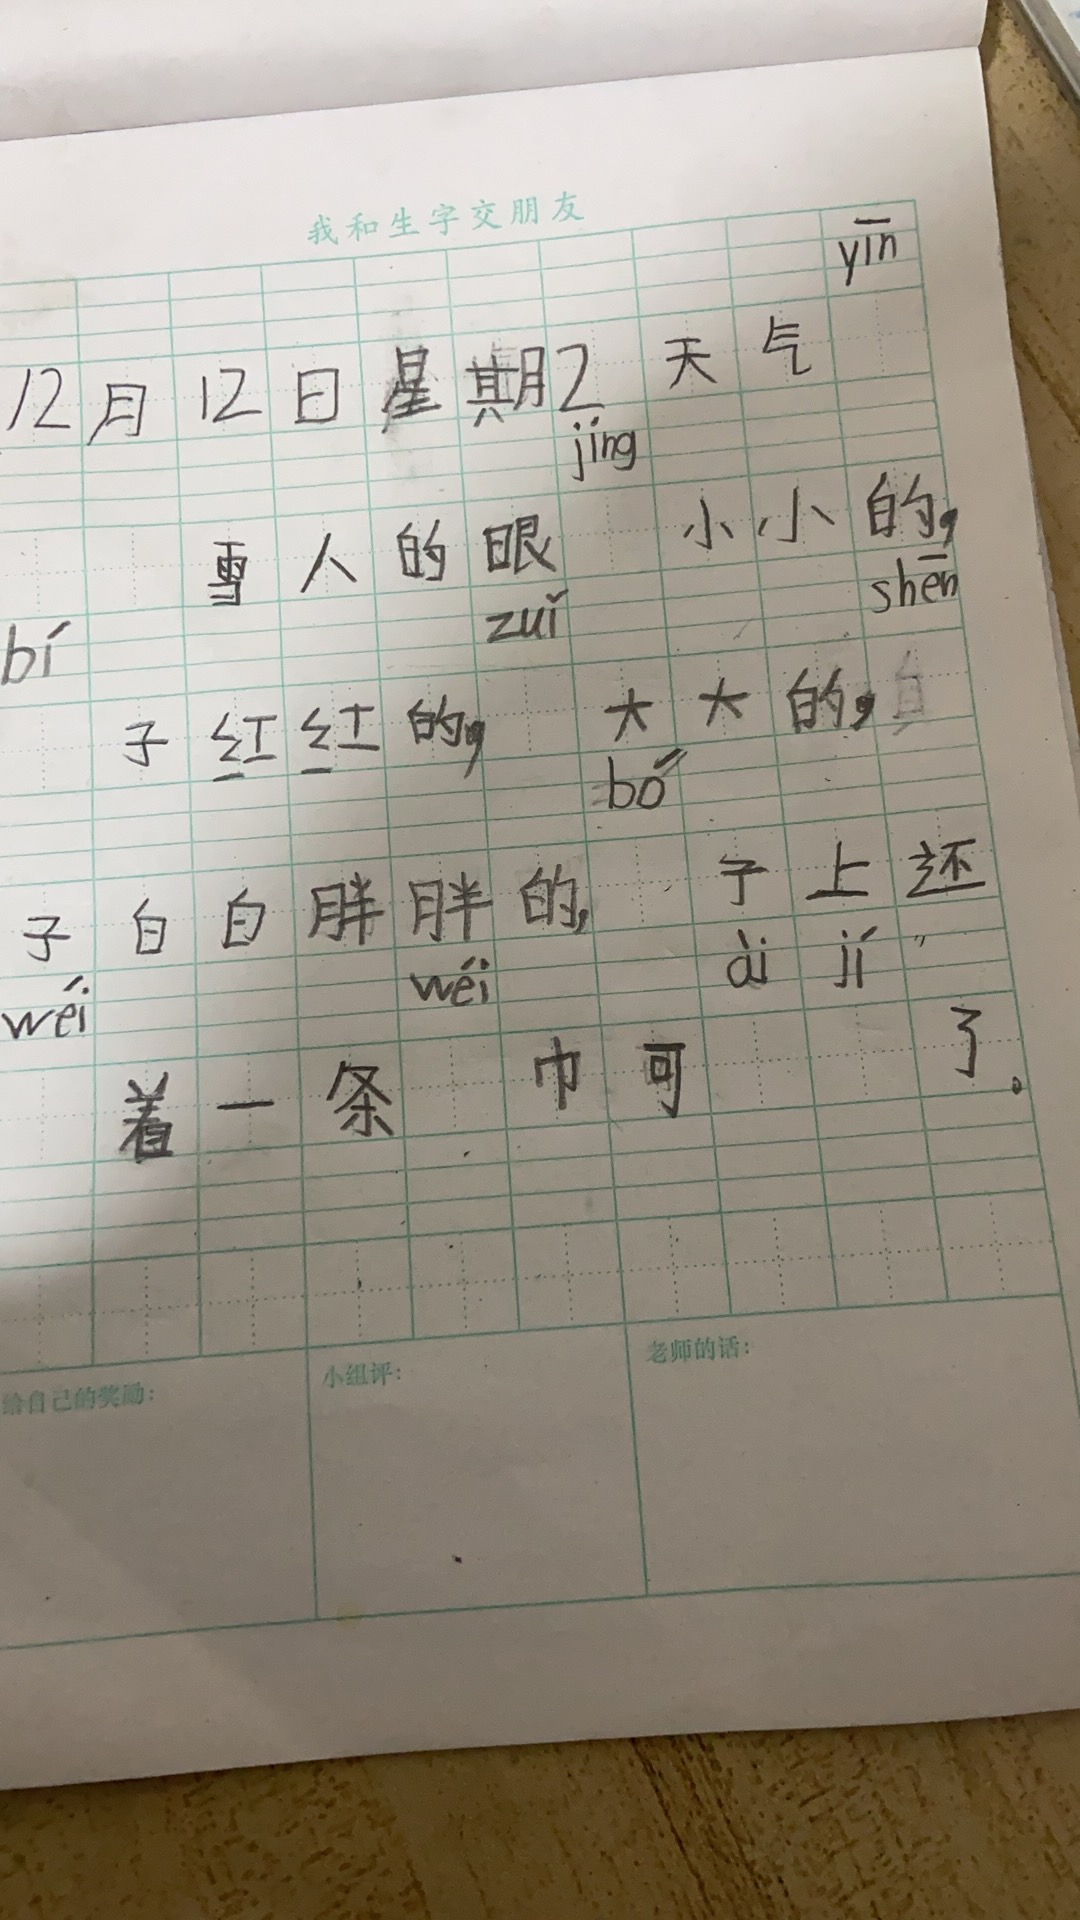 我和生字交朋友
yīn
12月12日星期2天气
jing
雪人的眼 小小的,
bí zuǐ shēn
子红红的, 大大的,
bó
子白白胖胖的, 子上还
wéi wéi ài jí
着一条 巾可 了。
给自己的奖励:
小组评:
老师的话: